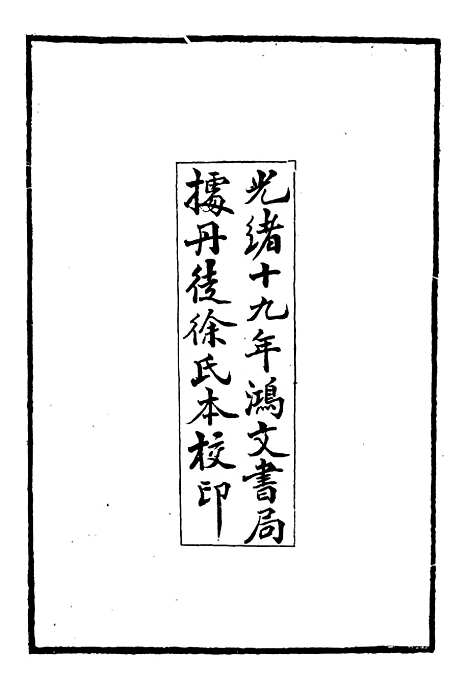 光緒十九年鴻文書局
據丹徒徐氏本校印